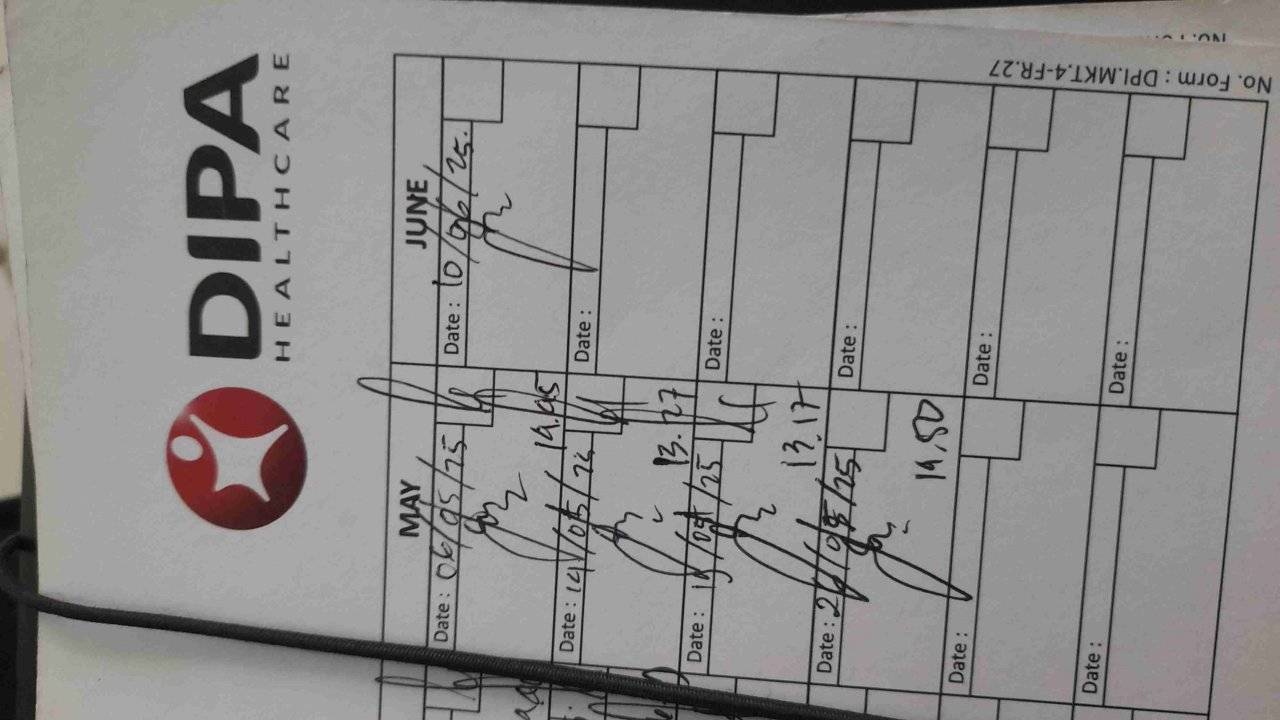 DIPA
HEALTHCARE
MAY
Date : 06/05/25
14.45
Date : 14/05/25
13.27
Date : 19/05/25
13.17
Date : 26/05/25
14.50
Date :
Date :
JUNE
Date : 10/06/25.
Date :
Date :
Date :
Date :
Date :
No. Form : DPI.MKT.4-FR.27